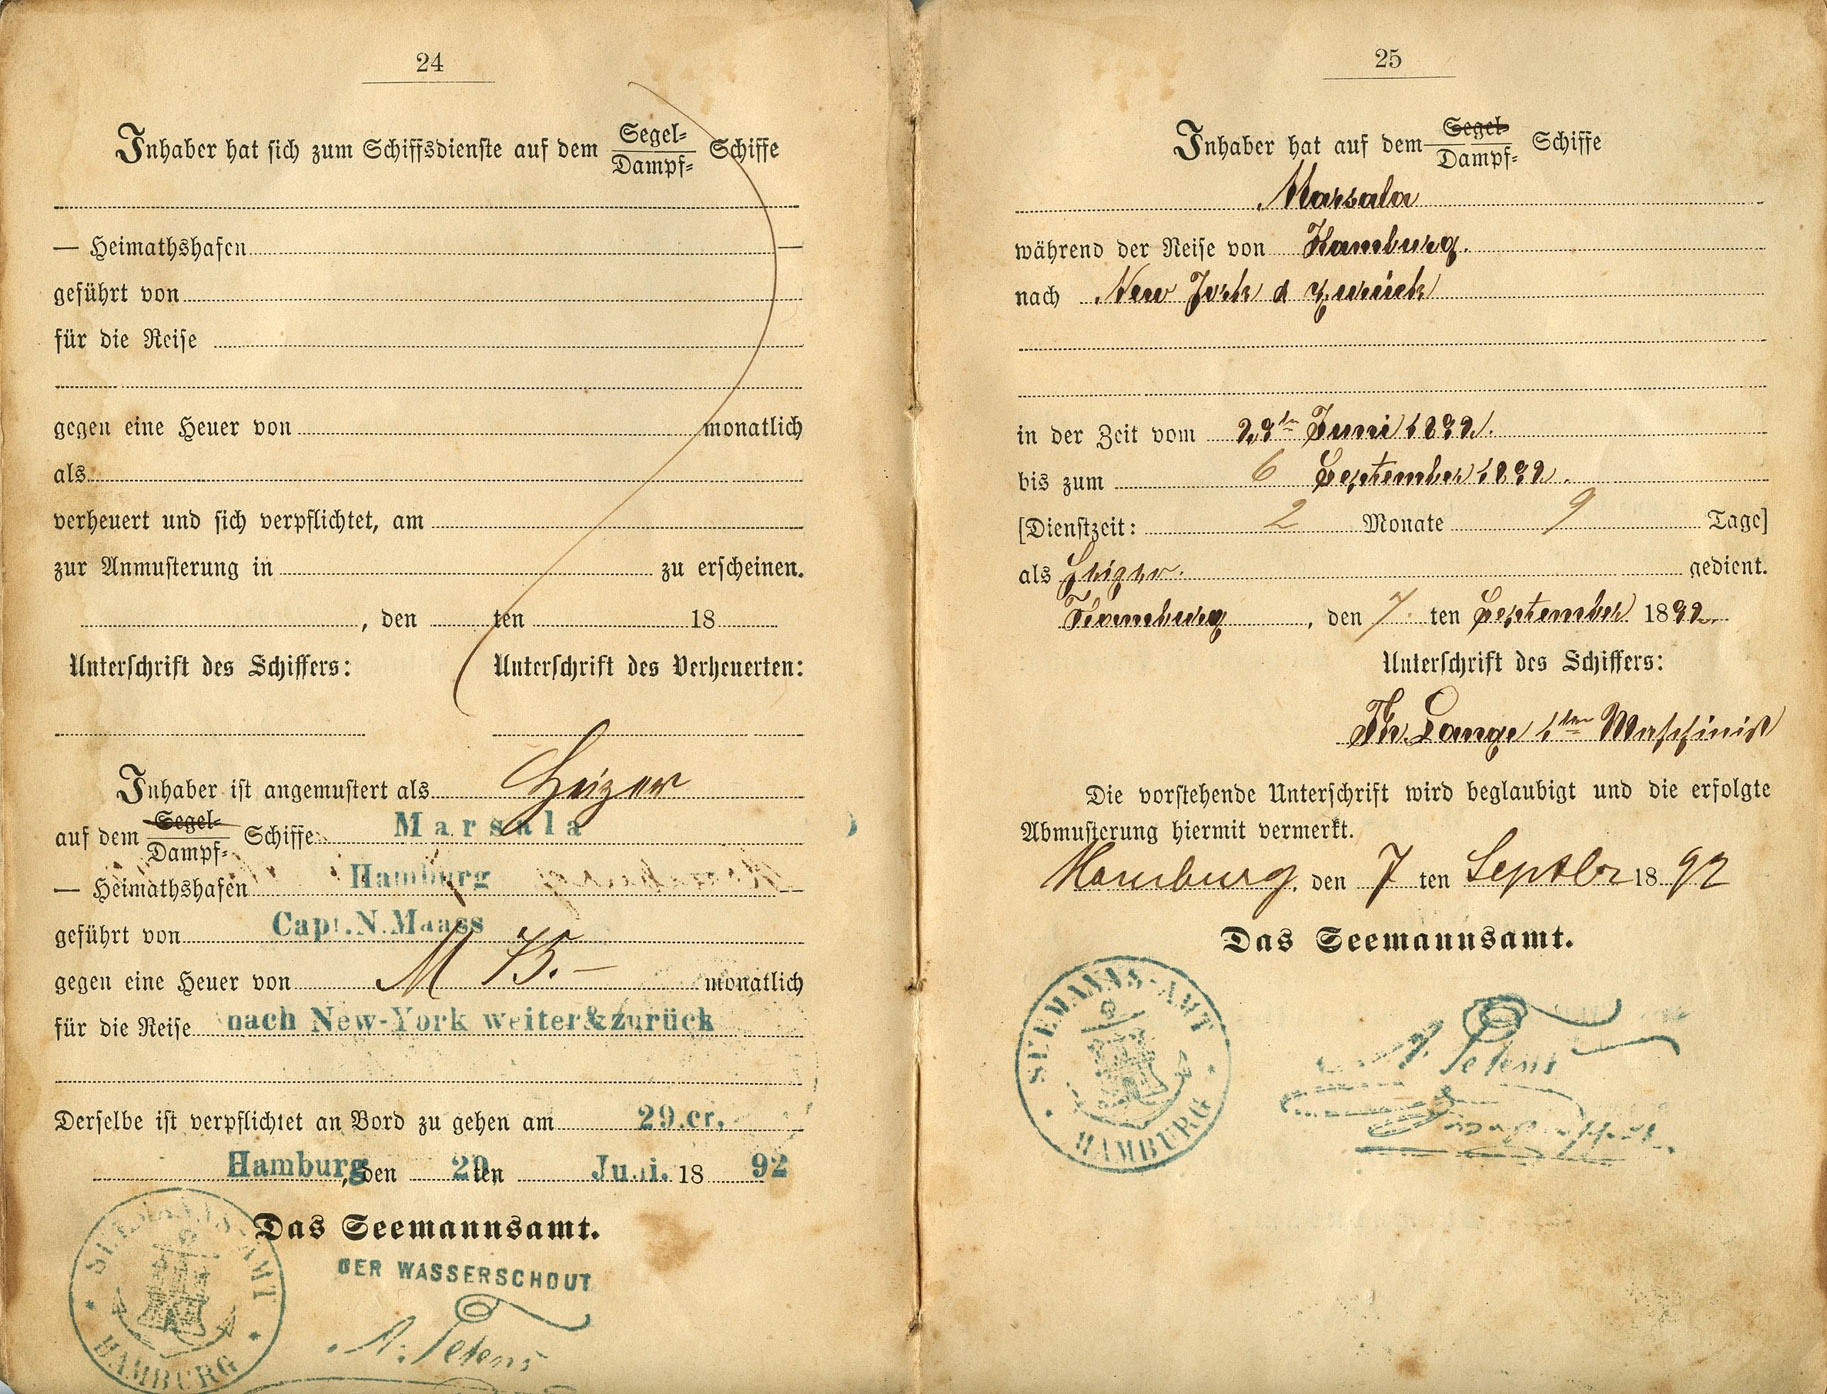 24
Inhaber hat sich zum Schiffsdienste auf dem Segel-/Dampf- Schiffe
— Heimathshafen —
geführt von
für die Reise
gegen eine Heuer von monatlich
als
verheuert und sich verpflichtet, am
zur Anmusterung in zu erscheinen.
, den ten 18
Unterschrift des Schiffers: Unterschrift des Verheuerten:
Inhaber ist angemustert als Heizer
auf dem Segel-/Dampf- Schiffe Marsala
— Heimathshafen Hamburg —
geführt von Capt. N. Maass
gegen eine Heuer von M 75.— monatlich
für die Reise nach New-York weiter & zurück
Derselbe ist verpflichtet an Bord zu gehen am 29. cr.
Hamburg, den 29 ten Juni. 18 92
Das Seemannsamt.
DER WASSERSCHOUT
A. Tetens
SEEMANNS-AMT HAMBURG
25
Inhaber hat auf dem Segel-/Dampf- Schiffe
Marsala
während der Reise von Hamburg.
nach New York & zurück
in der Zeit vom 29ten Juni 1892.
bis zum 6 September 1892.
[Dienstzeit: 2 Monate 9 Tage]
als Heizer. gedient.
Hamburg, den 7. ten September 1892.
Unterschrift des Schiffers:
Th. Lange 1ter Maschinist
Die vorstehende Unterschrift wird beglaubigt und die erfolgte
Abmusterung hiermit vermerkt.
Hamburg, den 7 ten Septbr 18 92
Das Seemannsamt.
SEEMANNS-AMT HAMBURG
A. Tetens